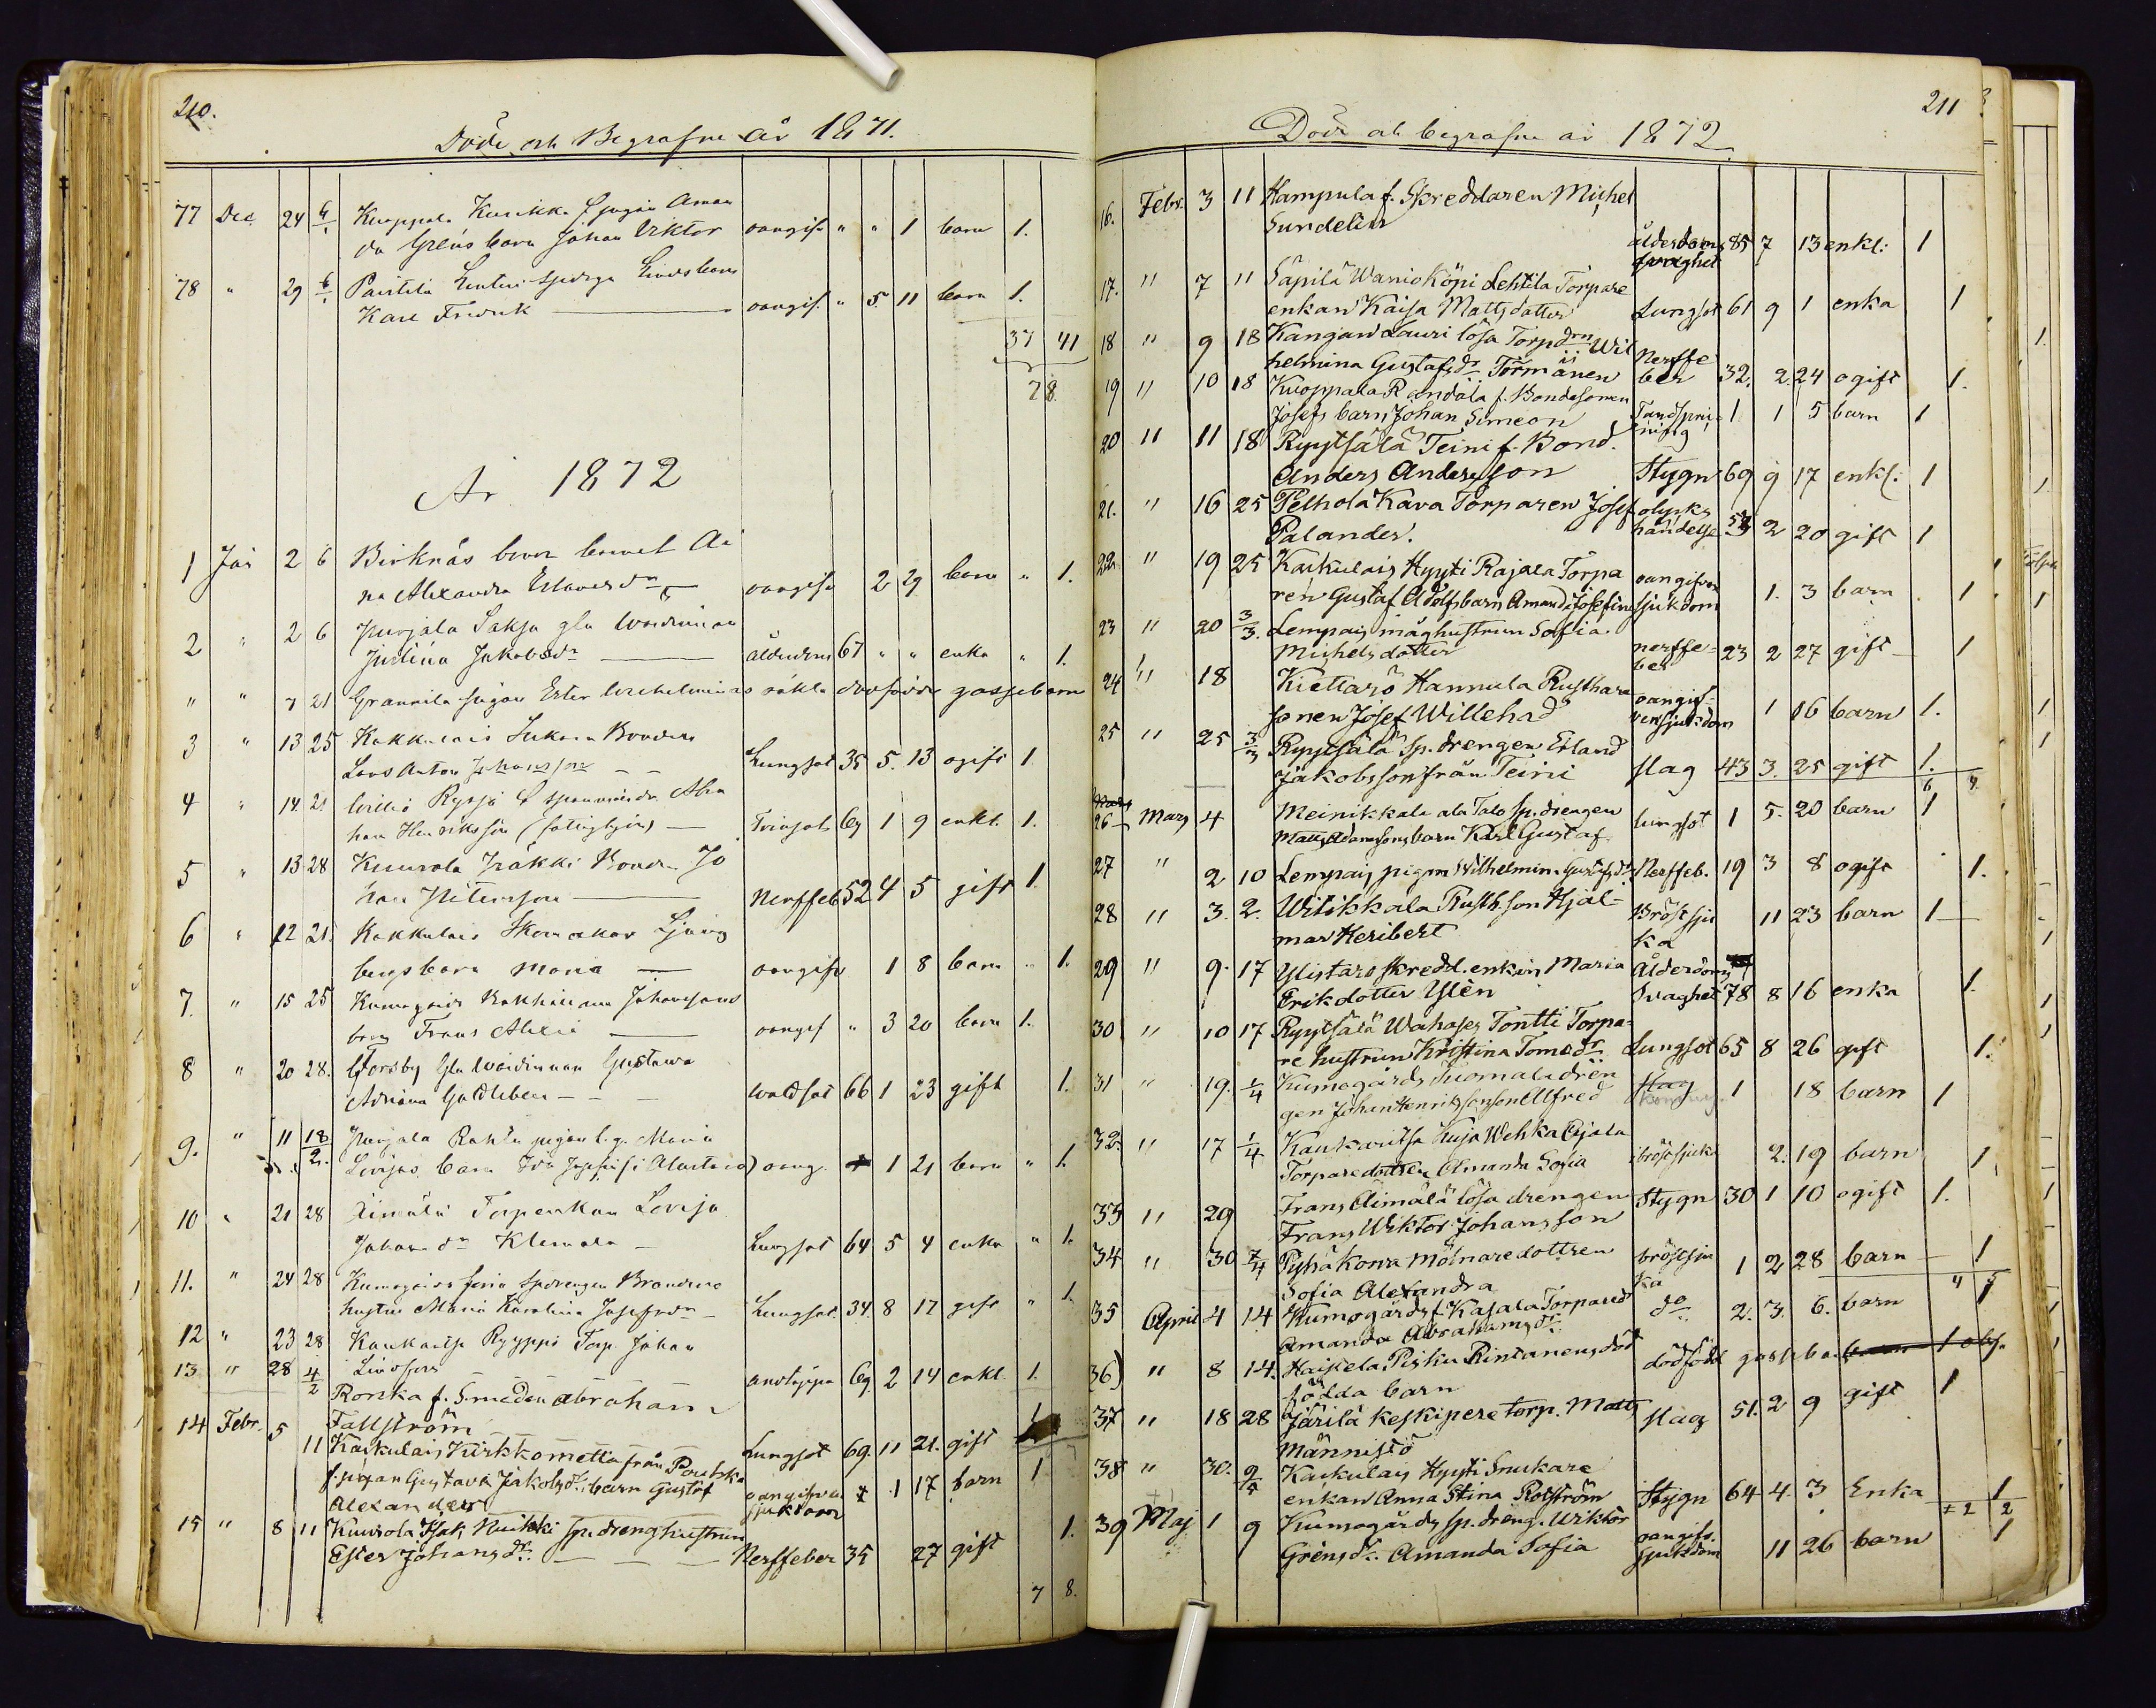 210.
Döde och Begrafne år 1871.
77 Dec. 24 6/1 Kuoppala Kurikka f. pigan Aman
da Gréns barn Johan Viktor oangif. " " 1 barn 1.
78 " 29 6/1 Paistila
Karl Fredrik oangif. " 5 11 barn 1.
37 41
78
År 1872
1 Jan 2 6 Birknäs barnet Ai
na Alexandra oangifv 2 29 barn " 1.
2 " 2 6 Purjala Saksa gla
Justina Jakobsdr ålderdom 67 " " enka " 1.
" " 7 21 Grannila pigan Ester Wilhelminas oäkta dödfödda gossebarn
3 " 13 25 Kakkulais Bonden
Lars Anton Johansson Lungsot 35 5. 13 ogift 1
4 " 14 21 Ryssjö f. Abra
ham Henriksson (fattighjon) Tvinsot 69 1 9 enkl. 1.
5 " 13 28 Kuurola Jräkki Bonden Jo
han Petersson Nerffeb 52 4 5 gift 1.
6 " 12 21. Kakkulais Skomakar Ljung
bergs barn Maria oangifv 1 8 barn " 1.
7. " 15 25 Kumogårds Johanssons
barn Frans Alexi oangif " 3 20 barn 1.
8 " 20 28. Forsby Gla Gustava
Adriana Gottleben waldsot 66 1 23 gift 1.
9. " 11 18/2 Purjala pigan Maria
Lovisas barn Ida Josefi oang. 1 21 barn " 1.
10 " 21 28 Äimälä Torpenkan Lovisa
Johansdr Klemola Lungsot 64 5 4 enka " 1.
11. " 24 28 Kumogårds spdrengen
hustru Maria Karolina Josefsdr Lungsot 34. 8 17 gift " 1.
12 " 23 28 Kaukaritsa Ryyppö Torp. Johan
Lindfors andtäppa 69. 2 14 enkl. 1.
13 " 28 4/2 Ronka f. Smeden Abraham
Fallström Lungsot 69. 11 21. gift
14 Febr. 5 11 Kaskulais Kirkkometta från
f. pigan Gustava Jakobsdr. barn Gustaf
Alexander oangifven sjukdom 1 17 barn 1
15 " 8 11 Kuurola Nuikki sp. drenghustrun
Ester Johansdr. Nerffeber 35 27 gift 1.
7 8.
211
Döde och begrafne år 1872.
16. Febr. 3 11 Hampula f. Skreddaren Michel
Sundelin ålderdoms svaghet 85 7 13 enkl: 1
17. " 7 11 Säpilä Wanio Köpi Lehtila Torpare
enkan Kaisa Mattsdotter Lungsot 61 9 1 enka 1
18 " 9 18 Kangari Lauri lösa Torpdrn Wil
helmina Gustafsdr. Törmänen Nerffe ber 32. 2. 24 ogift 1.
19 " 10 18 Kuoppala Randala f. Bondesonen
Josefs barn Johan Simeon Tandspric- ning 1 1 5 barn 1
20 " 11 18 Ryytsälä Teini f. Bond.
Anders Andersson Stygn 69 9 17 enkl: 1
21. " 16 25 Pelhola Kava Torparen Josef
Palander. olycks händelse 53 2 20 gift 1
22 " 19 25 Kaskulais Hyyti Rajala Torpa
ren Gustaf Adolfs barn Amanda Josefina oangifven sjukdom 1. 3 barn 1
23 " 20 3/3. Lempais måghustrun Sofia
Michelsdotter nerffe- ber 23 2 27 gift 1
24 " 18 Kiettarö Hannula Rusthare
sonen Josef Willehad oangif- ven sjukdom 1 16 barn 1.
25 " 25 3/3 Ryytsälä Sp. drengen Erland
Jakobsson från Teini slag 43 3. 25 gift 1.
6 4
26 Mars 4 Meinikkala ala Talo Sp. drengen
Matts Adamsons barn Karl Gustaf lungsot 1 5. 20 barn 1
27 " 2 10 Lempais pigan Wilhelmin. Gustafsdr Nerffeb. 19 3 8 ogift 1.
28 " 3. 2. Witikkala Rusth.son Hjal-
mar Heribert Bröstsju ka 11 23 barn 1
29 " 9. 17 Ylistaro skredd.enkan Maria
Erikdotter Ylén Ålderdoms Svaghet 78 8 16 enka 1.
30 " 10 17 Ryytsälä Wahases Tontti Torpa-
re hustrun Kristina Tomasdr. Lungsot 65 8 26 gift 1.
31 " 19. 1/4 Kumogårds Suomala dren
gen Johan Henrikssons son Alfred Slag 1 18 barn 1
32. " 17 1/4 Kaukaritsa Kuja Wehka Ojala
Torparedottren Amanda Sofia bröstsjuka 2. 19 barn 1
33 " 29 Frans Äimälä lösa drengen
Frans Wiktor Johansson Stygn 30 1 10 ogift 1.
34 " 30 7/4 Pyhäkorva Mölnaredottren
Sofia Alexandra bröstsju ka 1 2 28 barn 1
4 5
35 April 4 14 Kumogårds f. Kajala Torpared
Amanda Abrahamsdr. do 2. 3. 6. barn 1
36) " 8 14. Haistela Pisku Rintanens död
födda barn dödfödd gossebarn 1 obs.
37 " 18 28 Järilä Keskipere torp. Matts
Männistö slag 51. 2 9 gift 1
38 " 30. 9/4 Kaskulais Hyyti Snickare
enkan Anna Stina Rotström Stygn 64 4. 3 Enka 1
2 2
39 Maj 1 9 Kumogårds Sp. dreng. Wiktor
Grénsdr. Amanda Sofia oangifv. sjukdom 11 26 barn 1